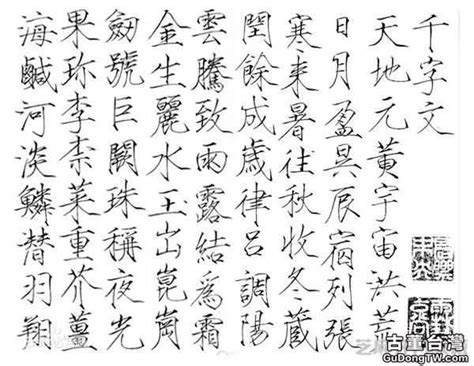 千字文
天地元黃宇宙洪荒
日月盈昃辰宿列張
寒来暑往秋收冬藏
閏餘成歳律呂調陽
雲騰致雨露結爲霜
金生麗水玉出崑崗
劒號巨闕珠稱夜光
果珎李柰菜重芥薑
海鹹河淡鱗潜羽翔
古董台灣
GuDongTW.com